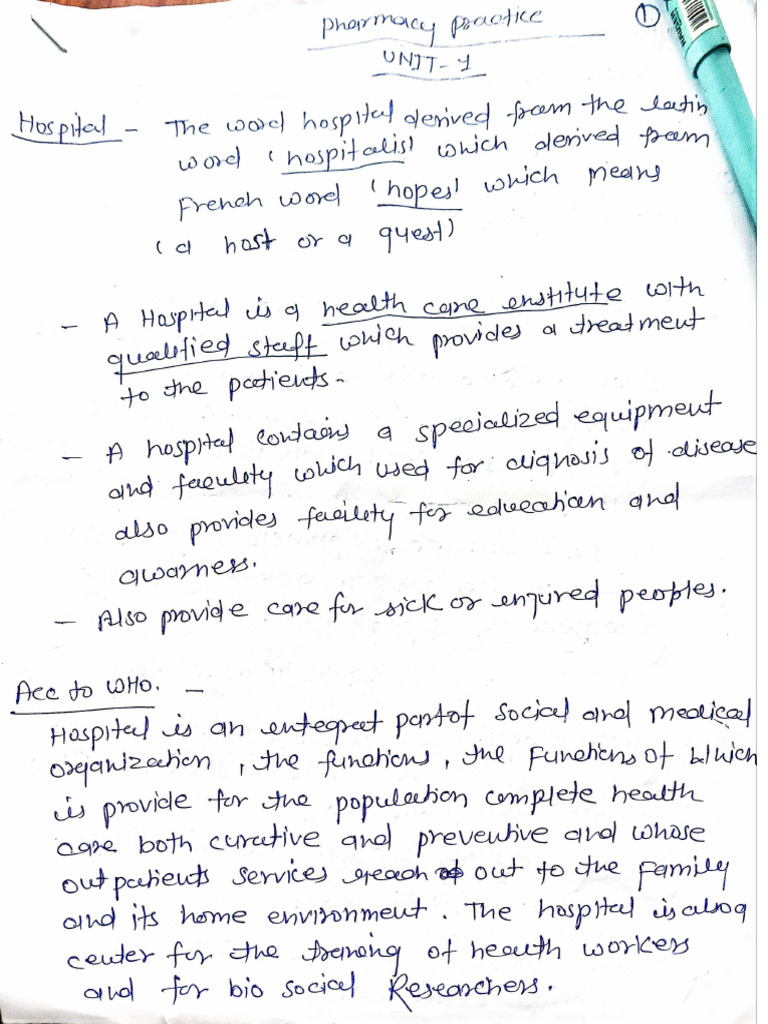 Pharmacy Practice
1
UNIT-1
Hospital - The word hospital derived from the latin
word 'hospitalis' which derived from
French word 'hopes' which means
(a host or a guest)
- A Hospital is a health care enstitute with
qualified staff which provides a treatment
to the patients.
- A hospital contains a specialized equipment
and faculity which used for dignosis of disease
also provides facility for education and
awarness.
- Also provide care for sick or enjured peoples.
Acc to WHO. -
Hospital is an integral part of social and medical
organization, the functions, the Functions of which
is provide for the population complete health
care both curative and preventive and whose
outpatients services reach out to the family
and its home environment. The hospital is also a
center for the traning of health workers
and for bio social Researchers.